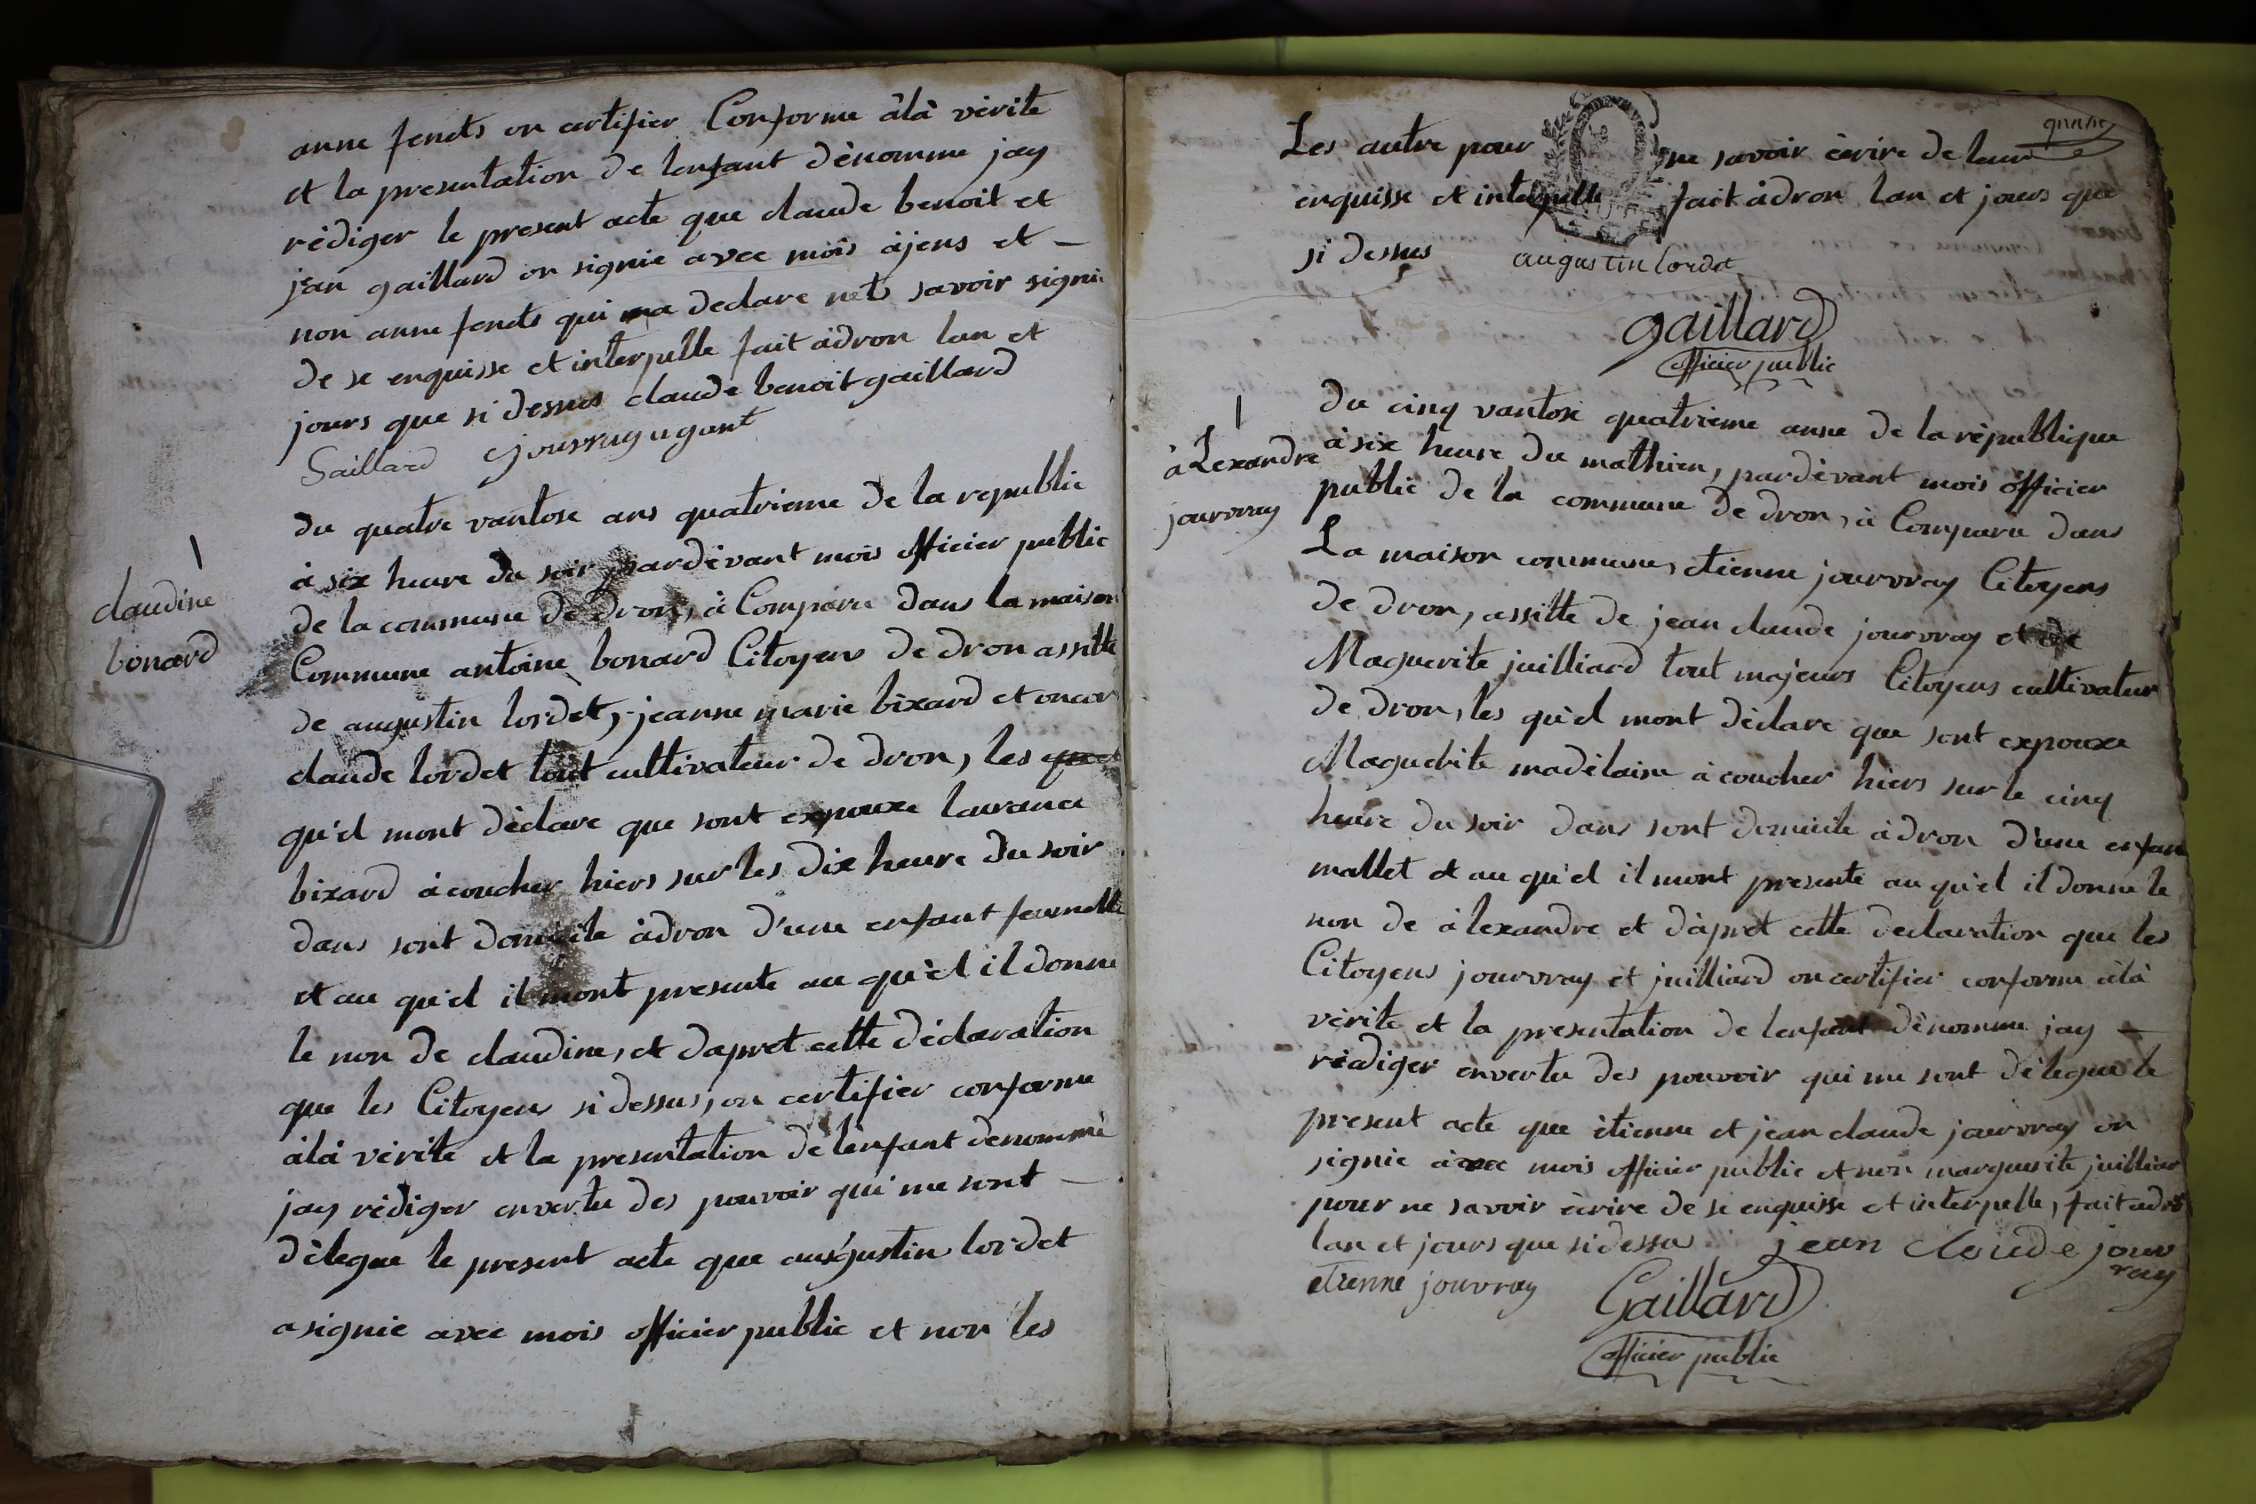 anne fendts on certifier Conforme âlà vèrite
et la presentation de lenfant dènomme jay
rèdiger le present acte que claude benoit et
jean gaillard on signie avec moîs àjens et —
non anne fendts qui ma declare nets savoir signie
de se enquisse et interpelle fait àdron lan et
jours que si dessus claude benoit gaillard
Gaillard
claudine
bonard
du quatre vantose ans quatrieme de la republic
à six heure du soir pardèvant mois officier public
de la commune de dron, à Comparu dans la maison
Commune antoine bonard Citoyens de dron assitte
de augustin lordet, jeanne marie bixard et oncor
claude lordet tout cultivateur de dron, les
qu'èl mont dèclare que sont expouxe laurance
bixard à coucher hiers sur les dix heure du soir
dans sont domicile àdron d'une enfant feumelle
et au qu'èl il mont presente au qu'èl il donne
le non de claudine, et dapret cette dèclaration
que les Citoyens si dessus, on certifier conforme
àlà vèrite et la presentation de lenfant dènommè
jay rèdiger envertu des pouvoir qui me sont —
dèlegue le present acte que augustin lordet
a signie avec mois officier public et non les
Les autre pour ne savoir ècrire de leur
enquisse et interpelle fait àdron lan et jours que
si dessus augustin lordet
gaillard
officier public
à Lexandre
jouvray
du cinq vantose quatrieme anne de la rèpublique
à six heure du mathien, pardèvant mois officier
public de la commune de dron, à Comparu dans
La maison commune, etienne jouvray Citoyens
de dron, assitte de jean claude jouvray et de
Maguerite juilliard tout majeurs Citoyens cultivateur
de dron, les qu'èl mont dèclare que sont expouxe
Maguerite madèlaine à coucher hiers sur le cinq
heure du soir dans sont domicile àdron d'une enfan
mallet et au qu'èl il mont presente au qu'èl il donne le
non de àlexandre et dàpret cette declaration que les
Citoyens jouvray et juilliard on certifier conforme àlà
vèrite et la presentation de lenfant dènomme jay —
rèdiger envertu des pouvoir qui me sont dèleguè le
present acte que ètienne et jean claude jouvray on
signie avec mois officier public et non marguerite juilliar
pour ne savoir ècrire de se enquisse et interpelle, fait adro
lan et jours que si dessu jean cloude jouv
ray
etienne jouvray
Gaillard
officier public